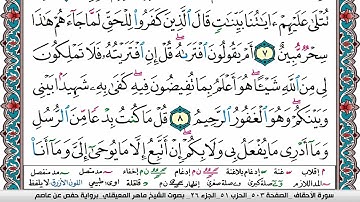 تُتْلَىٰ عَلَيْهِمْ ءَايَٰتُنَا بَيِّنَٰتٍ قَالَ ٱلَّذِينَ كَفَرُوا۟ لِلْحَقِّ لَمَّا جَآءَهُمْ هَٰذَا
سِحْرٌ مُّبِينٌ ٧ أَمْ يَقُولُونَ ٱفْتَرَىٰهُ قُلْ إِنِ ٱفْتَرَيْتُهُۥ فَلَا تَمْلِكُونَ
لِى مِنَ ٱللَّهِ شَيْـًٔا هُوَ أَعْلَمُ بِمَا تُفِيضُونَ فِيهِ كَفَىٰ بِهِۦ شَهِيدًۢا بَيْنِى
وَبَيْنَكُمْ وَهُوَ ٱلْغَفُورُ ٱلرَّحِيمُ ٨ قُلْ مَا كُنتُ بِدْعًا مِّنَ ٱلرُّسُلِ
وَمَآ أَدْرِى مَا يُفْعَلُ بِى وَلَا بِكُمْ إِنْ أَتَّبِعُ إِلَّا مَا يُوحَىٰٓ إِلَىَّ وَمَآ أَنَا۠
سورة الأحقاف الصفحة ٥٠٣ الحزب ٥١ الجزء ٢٦ بصوت الشيخ ماهر المعيقلي برواية حفص عن عاصم